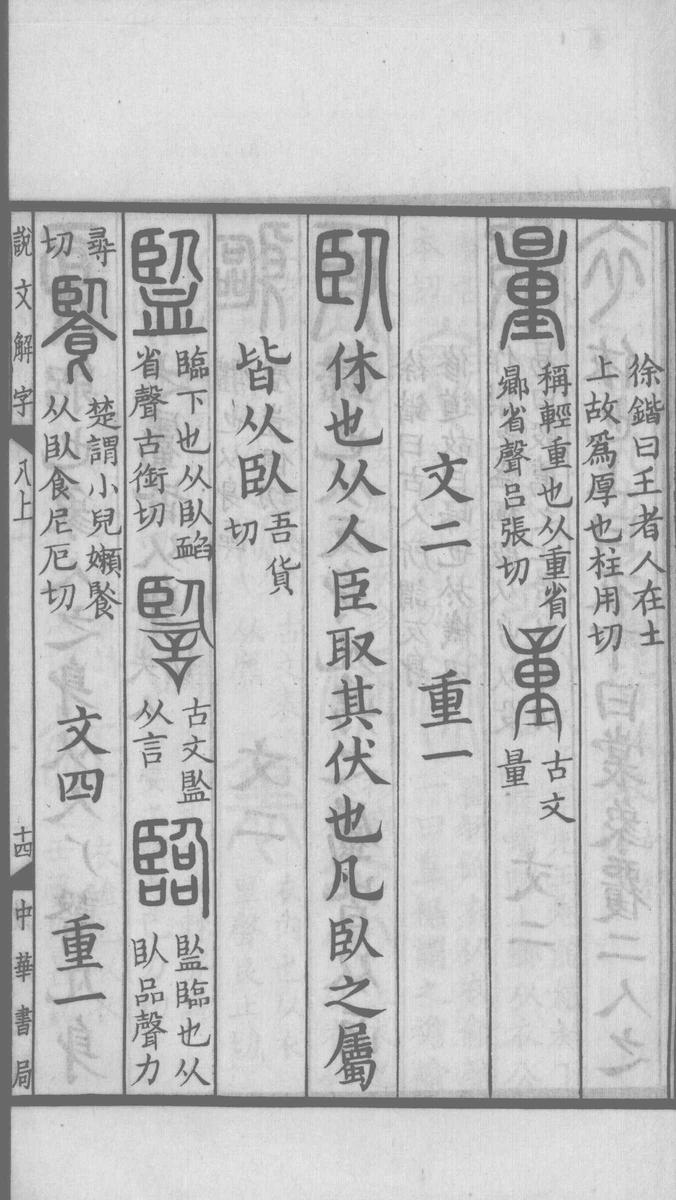 徐鍇曰王者人在土
上故爲厚也柱用切
量 稱輕重也从重省
曏省聲呂張切
量 古文
量
文二 重一
臥 休也从人臣取其伏也凡臥之屬
皆从臥 吾貨
切
監 臨下也从臥䘓
省聲古銜切
𧨴 古文監
从言
臨 監臨也从
臥品聲力
尋
切
䭆 楚謂小兒嬾䬴
从臥食尼厄切
文四 重一
說文解字 八上 十四 中華書局